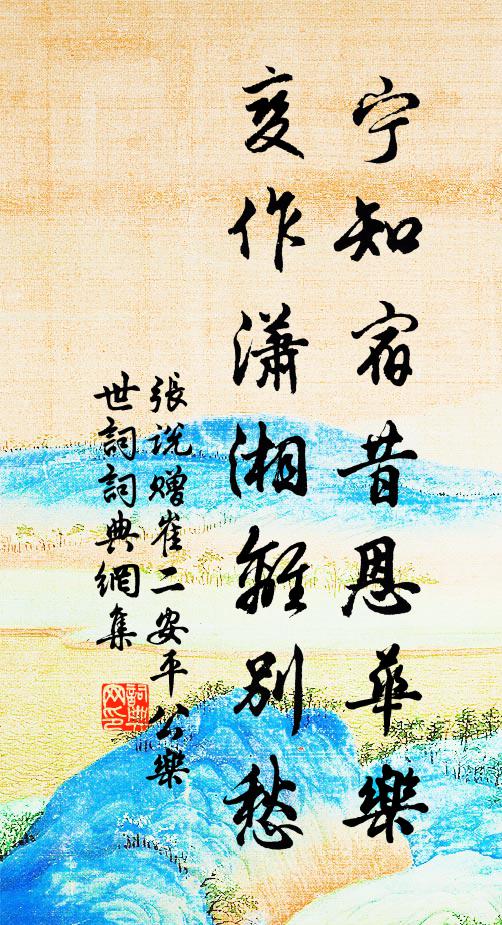 宁知宿昔恩华樂
变作潇湘離别愁
張说赠崔二安平公樂
世詞詞典網集